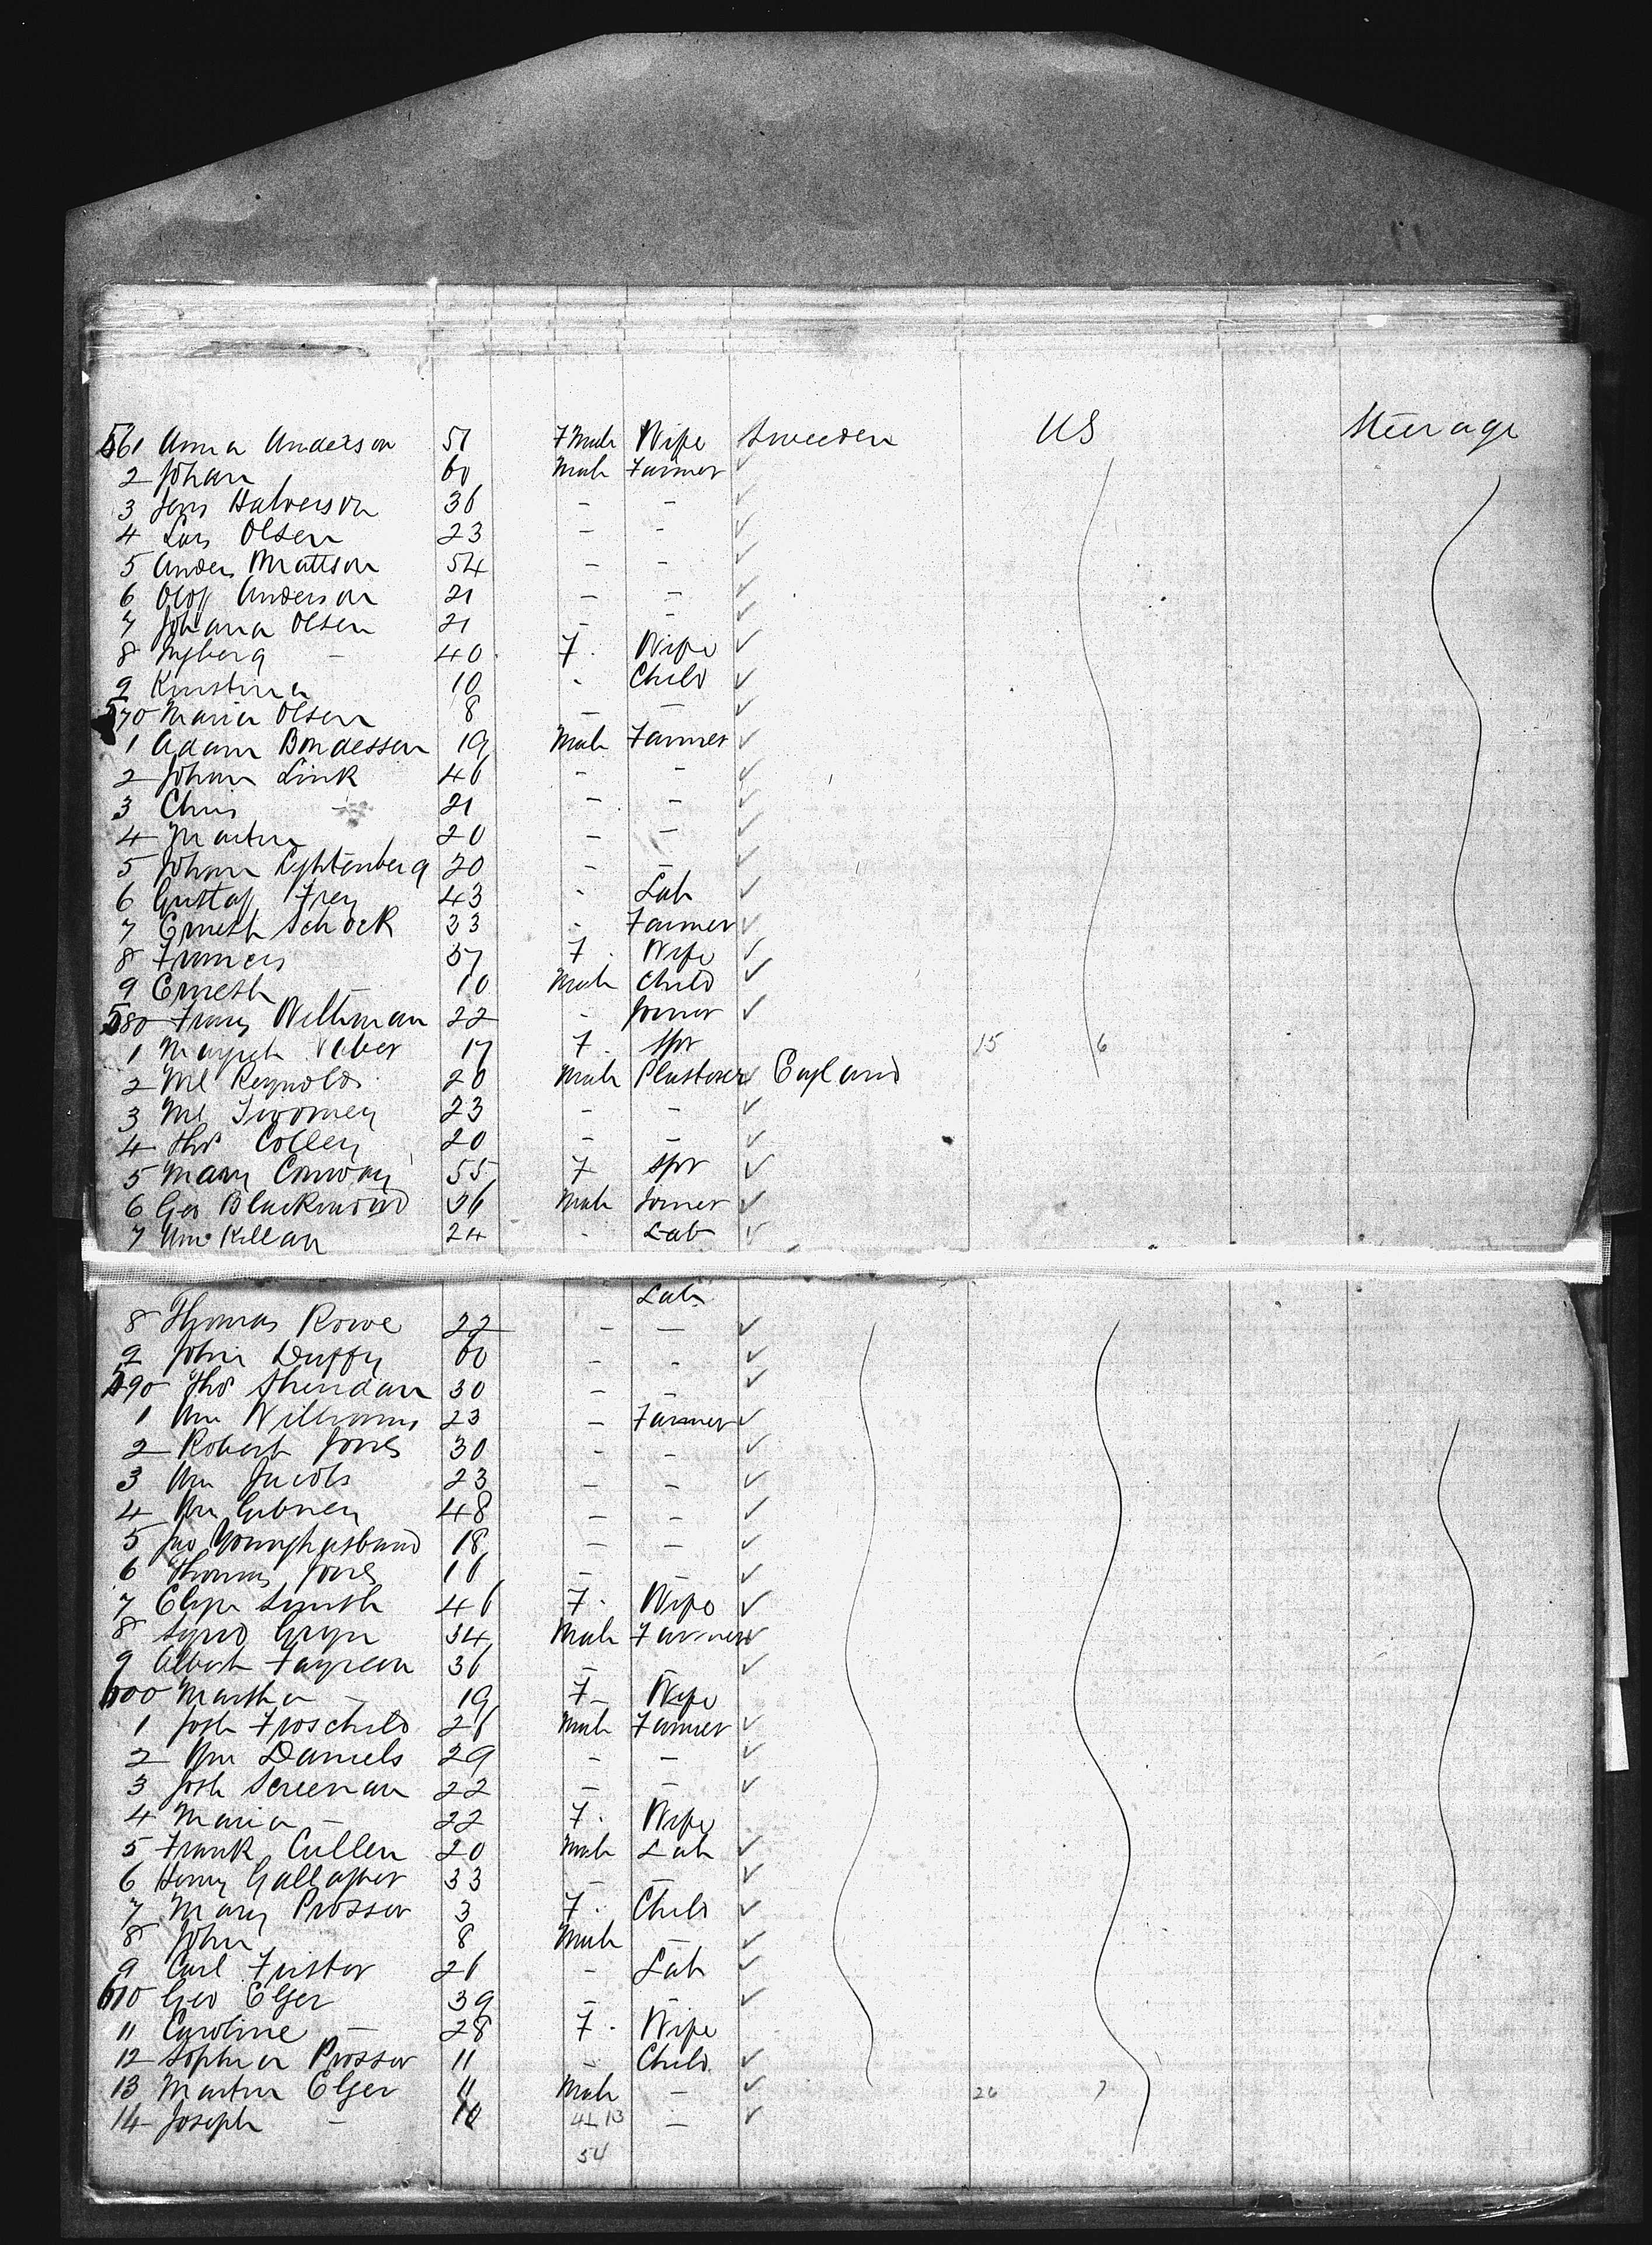 561 Anna Anderson 51 Female Wife Sweeden US Steerage
2 Johan 60 Male Farmer
3 Jens Halverson 36 - -
4 Lars Olsen 23 - -
5 Anders Mattson 54 - -
6 Olof Anderson 21 - -
7 Johana Olsen 21 - -
8 - 40 F. Wife
9 Kristina 10 - Child
570 Maria Olsen 8 - -
1 Adam Bondesson 19 Male Farmer
2 Johan Link 46 - -
3 Chris - 21 - -
4 Martin 20 - -
5 Johan Lychtenberg 20 - -
6 Gustaf Frey 43 - Lab
7 Ernesth Schock 33 - Farmer
8 Frances 37 F. Wife
9 Ernesth - 10 Male Child
580 Franz Wilhman 22 - Joiner
1 17 F. Spr 15 6
2 Ml Reynolds 20 Male Plasterer England
3 Ml Twomey 23 - -
4 Thos Colley 20 - -
5 Mary Conway 55 F Spr
6 Geo Blackwood 36 Male Joiner
7 Wm Killan 24 - Lab
Lab
8 Thomas Rowe 22 - -
9 John Duffy 60 - -
590 Thos Sheridan 30 - -
1 Wm Williams 23 - Farmer
2 Robert Jones 30 - -
3 Wm Jacobs 23 - -
4 Wm Gibney 48 - -
5 Jno Younghusband 18 - -
6 Thomas Jones 16 - -
7 Eliza Smith 46 F. Wife
8 34 Male Farmer
9 Albert 36 - -
600 Martha - 19 F - Wife
1 Josh 26 Male Farmer
2 Wm Daniels 29 - -
3 Josh Screenan 22 - -
4 Maria - 22 F. Wife
5 Frank Cullen 20 Male Lab
6 Henry Gallagher 33 - -
7 Mary Prosser 3 F. Child
8 John 8 Male -
9 Carl Fuster 26 - Lab
610 Geo Elger 39 - -
11 Caroline - 28 F. Wife
12 Sophia Prosser 11 - Child
13 Martin Elger 11 Male - 26 7
14 Joseph - 10 41 13 -
54